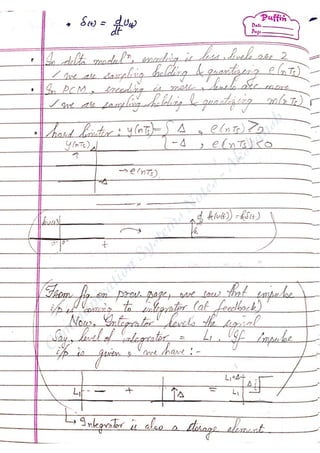 Puffin
Date
Page
• δ(t) = d/dt u(t)
• In delta modulⁿ, encoding is less, levels are 2
/ we are sampling holding & quantizing e(nTs)
• In PCM, encoding is more, levels are more
/ we are sampling holding & quantizing m(nTs)
• hard limiter : y(nTs) = { Δ , e(nTs) > 0
{ -Δ , e(nTs) < 0
y(nTs)
→ e(nTs)
-Δ
d/dt k(u(t)) = kδ(t)
t
From fig. on prev. page, we saw that impulse
i/p is coming to integrator (at feedback)
Now, Integrator levels the signal
Say, level of integrator = L₁. If impulse
i/p is given, we have :-
L₁ + ↑Δ = L₁+Δ L₁ Δ
↳ Integrator is also a storage element.